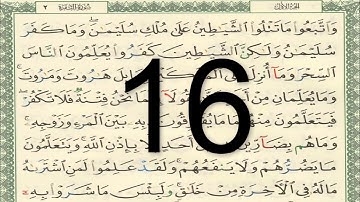 الجزء الأول سورة البقرة ٢
وَاتَّبَعُوا مَا تَتْلُوا الشَّيَاطِينُ عَلَىٰ مُلْكِ سُلَيْمَانَ ۖ وَمَا كَفَرَ
سُلَيْمَانُ وَلَٰكِنَّ الشَّيَاطِينَ كَفَرُوا يُعَلِّمُونَ النَّاسَ
السِّحْرَ وَمَا أُنزِلَ عَلَى بِبَابِلَ هَارُوتَ وَمَارُوتَ ۚ
وَمَا يُعَلِّمَانِ مِنْ نَحْنُ فِتْنَةٌ فَلَا تَكْفُرْ ۖ
فَيَتَعَلَّمُونَ مِنْهُمَا مَا يُفَرِّقُونَ بِهِ بَيْنَ الْمَرْءِ وَزَوْجِهِ ۚ
وَمَا هُم بِضَارِّينَ أَحَدٍ إِلَّا بِإِذْنِ اللَّهِ ۚ وَيَتَعَلَّمُونَ
مَا يَضُرُّهُمْ وَلَا يَنفَعُهُمْ ۚ وَلَقَدْ عَلِمُوا لَمَنِ اشْتَرَاهُ
مَا لَهُ فِي الْآخِرَةِ مِنْ خَلَاقٍ ۚ وَلَبِئْسَ مَا شَرَوْا بِهِ
16